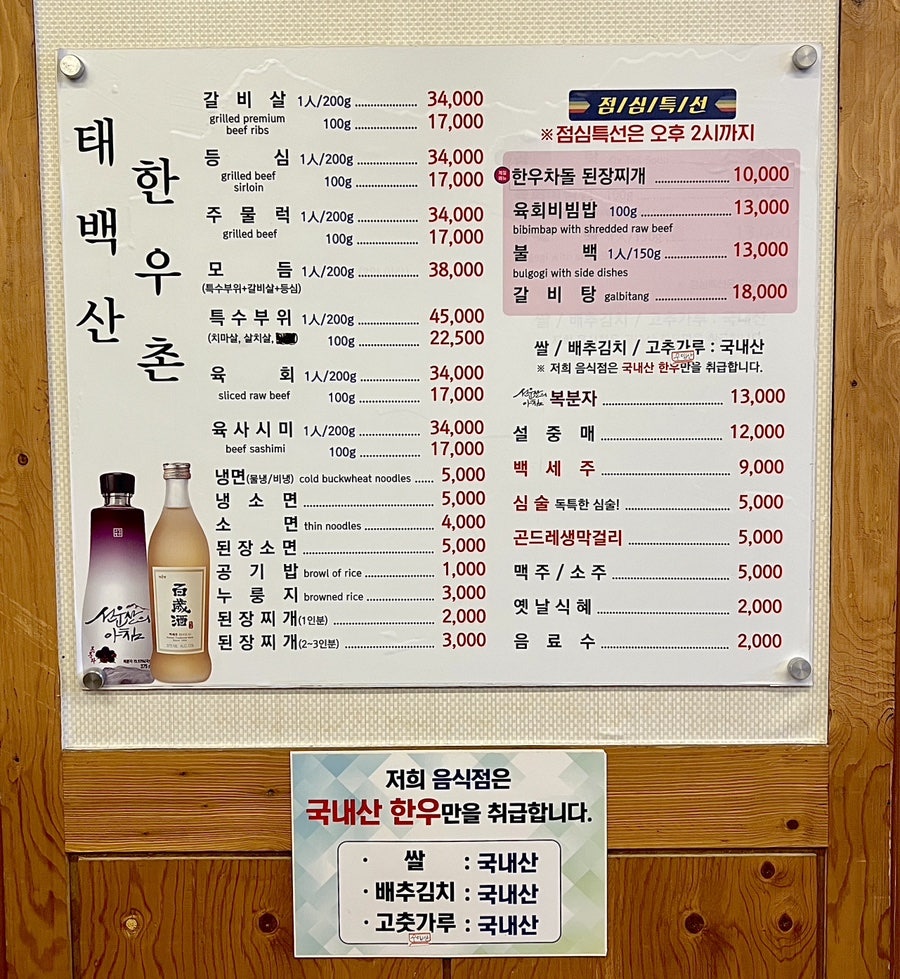 태백산
한우촌
갈비살 1人/200g 34,000
grilled premium beef ribs 100g 17,000
등심 1人/200g 34,000
grilled beef sirloin 100g 17,000
주물럭 1人/200g 34,000
grilled beef 100g 17,000
모듬 1人/200g 38,000
(특수부위+갈비살+등심)
특수부위 1人/200g 45,000
(치마살, 살치살, 100g 22,500
육회 1人/200g 34,000
sliced raw beef 100g 17,000
육사시미 1人/200g 34,000
beef sashimi 100g 17,000
냉면(물냉/비냉) cold buckwheat noodles 5,000
냉소면 5,000
소면 thin noodles 4,000
된장소면 5,000
공기밥 browl of rice 1,000
누룽지 browned rice 3,000
된장찌개(1인분) 2,000
된장찌개(2~3인분) 3,000
점/심/특/선
※점심특선은 오후 2시까지
한우차돌 된장찌개 10,000
육회비빔밥 100g 13,000
bibimbap with shredded raw beef
불백 1人/150g 13,000
bulgogi with side dishes
갈비탕 galbitang 18,000
쌀 / 배추김치 / 고추가루 : 국내산
※ 저희 음식점은 국내산 한우만을 취급합니다.
선운산의 아침 복분자 13,000
설중매 12,000
백세주 9,000
심술 독특한 심술! 5,000
곤드레생막걸리 5,000
맥주/소주 5,000
옛날식혜 2,000
음료수 2,000
선운산의
아침
百歲酒
저희 음식점은
국내산 한우만을 취급합니다.
· 쌀 : 국내산
· 배추김치 : 국내산
· 고춧가루 : 국내산